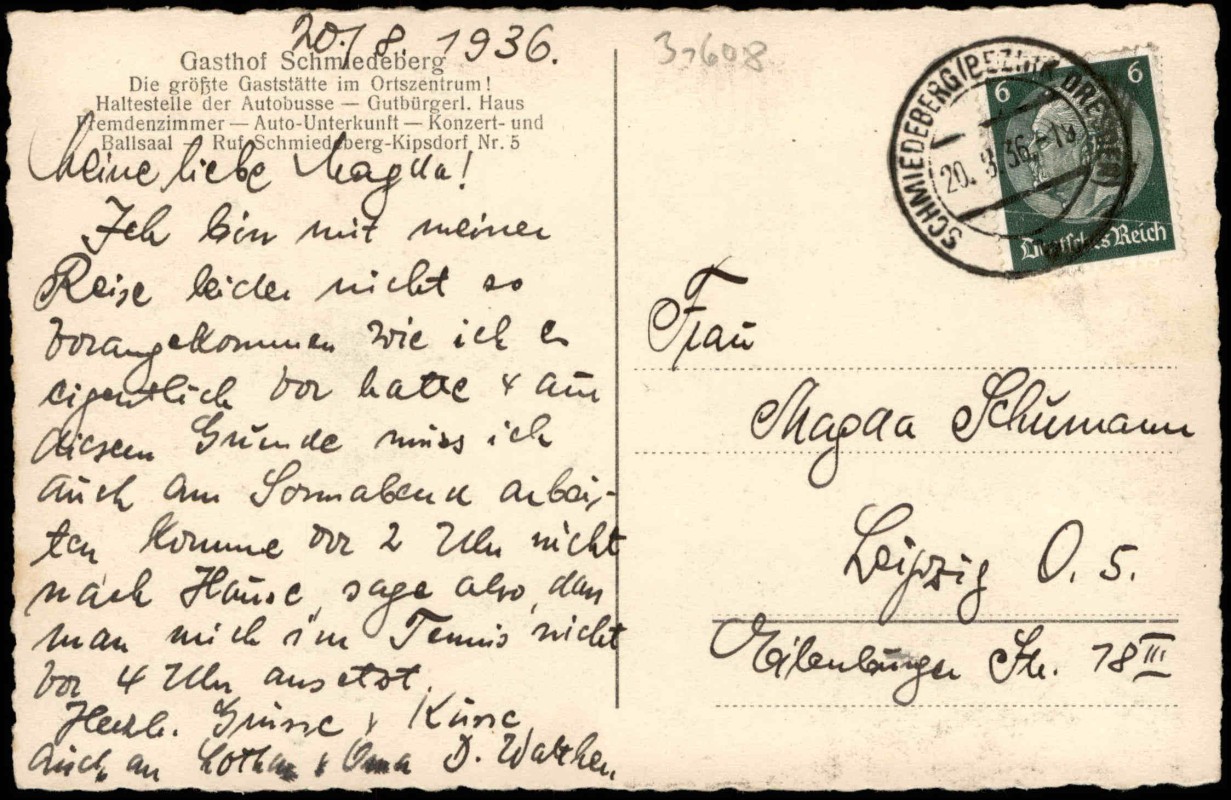 20./8. 1936.
Gasthof Schmiedeberg
Die größte Gaststätte im Ortszentrum!
Haltestelle der Autobusse — Gutbürgerl. Haus
Fremdenzimmer — Auto-Unterkunft — Konzert- und
Ballsaal — Ruf Schmiedeberg-Kipsdorf Nr. 5
Meine liebe Magda!
Ich bin mit meiner
Reise leider nicht so
vorangekommen wie ich es
eigentlich vor hatte & aus
diesem Grunde muss ich
auch am Sonnabend arbei-
ten komme vor 2 Uhr nicht
nach Hause, sage also, dass
man mich im Tennis nicht
vor 4 Uhr ansetzt.
Herzl. Grüsse & Küsse
auch an Lothar & Oma D. Walther
3,608
SCHMIEDEBERG (BEZIRK DRESDEN)
20. 8. 36. - 19
6 6
Deutsches Reich
Frau
Magda Schumann
Leipzig O. 5.
Eilenburger Str. 18 III